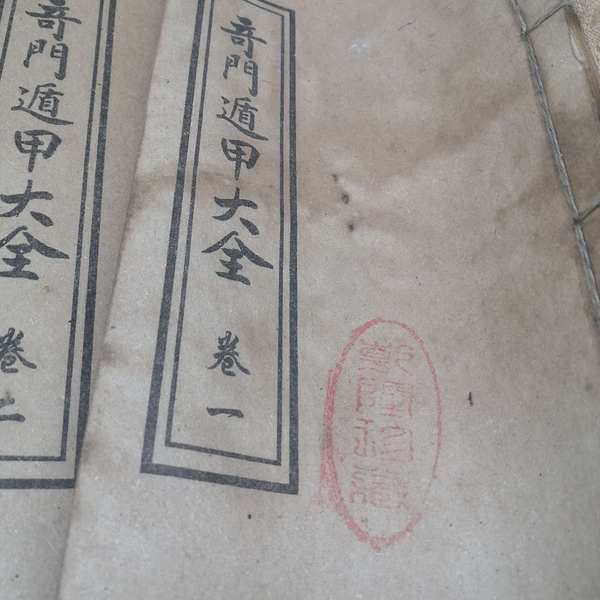 奇門遁甲大全 卷一
奇門遁甲大全 卷二
乾隆珍藏